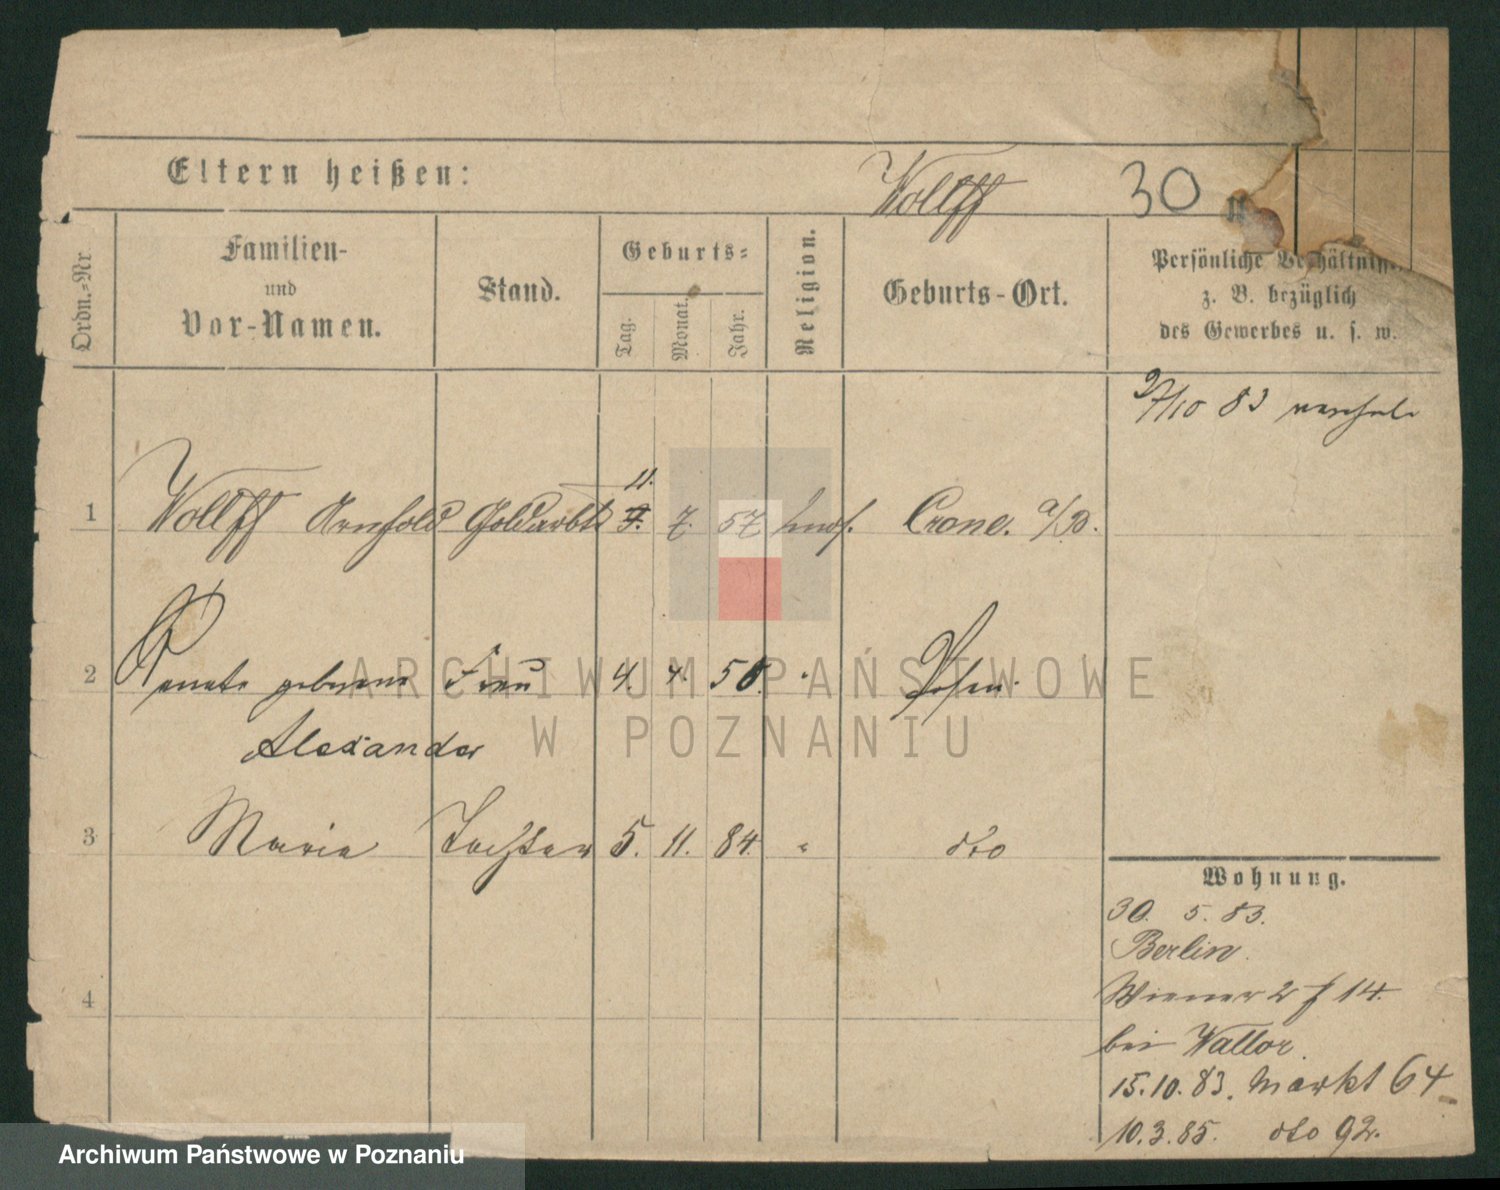 Eltern heißen:
Wolff 30
Ordn.=Nr
Familien-
und
Vor-Namen.
Stand.
Geburts=
Tag.
Monat.
Jahr.
Religion.
Geburts-Ort.
Persönliche Verhältnisse
z. B. bezüglich
des Gewerbes u. s. w.
83
1 Wolff Arnhold Goldarbtr 11. 7. 57 mos. Crone. a/B.
2 Renate geborene Frau 4. 4. 58. " Posen.
Alexander
3 Maria Tochter 5. 11. 84. " dto
4
Wohnung.
30. 5. 83.
Berlin.
Wiener 14.
bei Wallor.
15.10.83. Markt 64
10.3.85. dto 92.
ARCHIWUM PAŃSTWOWE
W POZNANIU
Archiwum Państwowe w Poznaniu